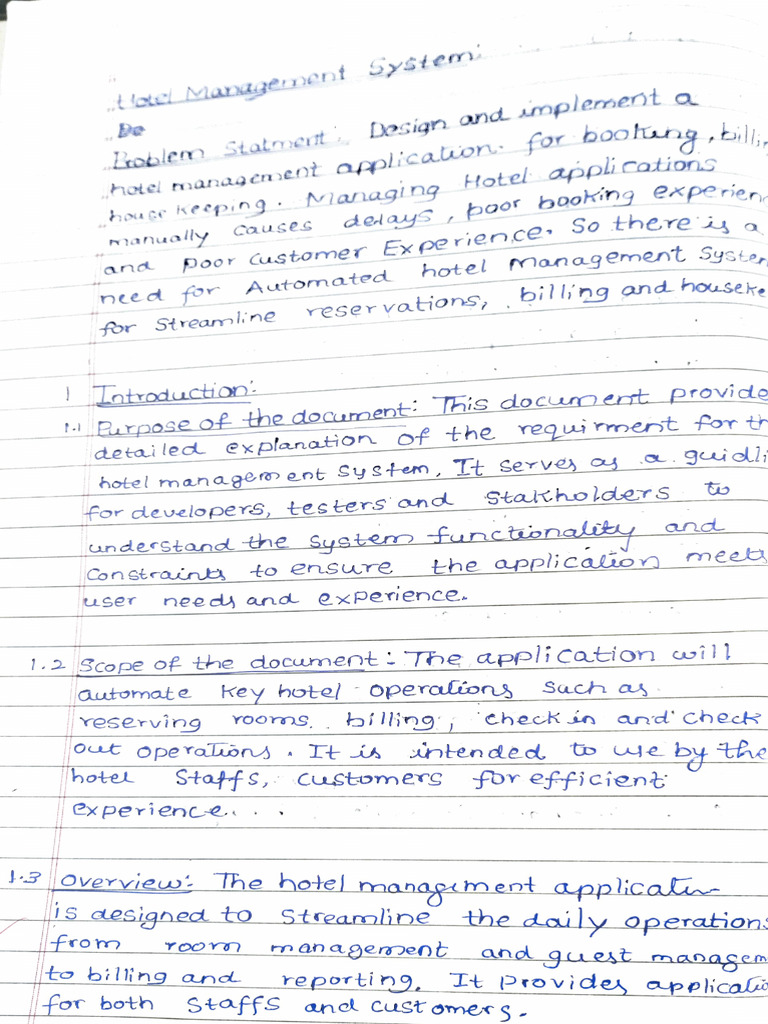 Hotel Management System:
De
Problem Statment: Design and implement a
hotel management application. for booking, billin
house keeping. Managing Hotel applications
manually causes delays, poor booking experienc
and poor customer Experience. So there is a
need for Automated hotel management System
for Streamline reservations, billing and houseke
1 Introduction:
1.1 Purpose of the document: This document provide
detailed explanation of the requirment for th
hotel management System. It serves as a guidli
for developers, testers and Stakholders to
understand the system functionality and
constraints to ensure the application meets
user needs and experience.
1.2 Scope of the document: The application will
automate key hotel operations such as
reserving rooms. billing, check in and check
out operations. It is intended to use by the
hotel Staffs, customers for efficient
experience.
1.3 Overview: The hotel management applicatin
is designed to Streamline the daily operations
from room management and guest managem
to billing and reporting. It provides applicatio
for both Staffs and customers.